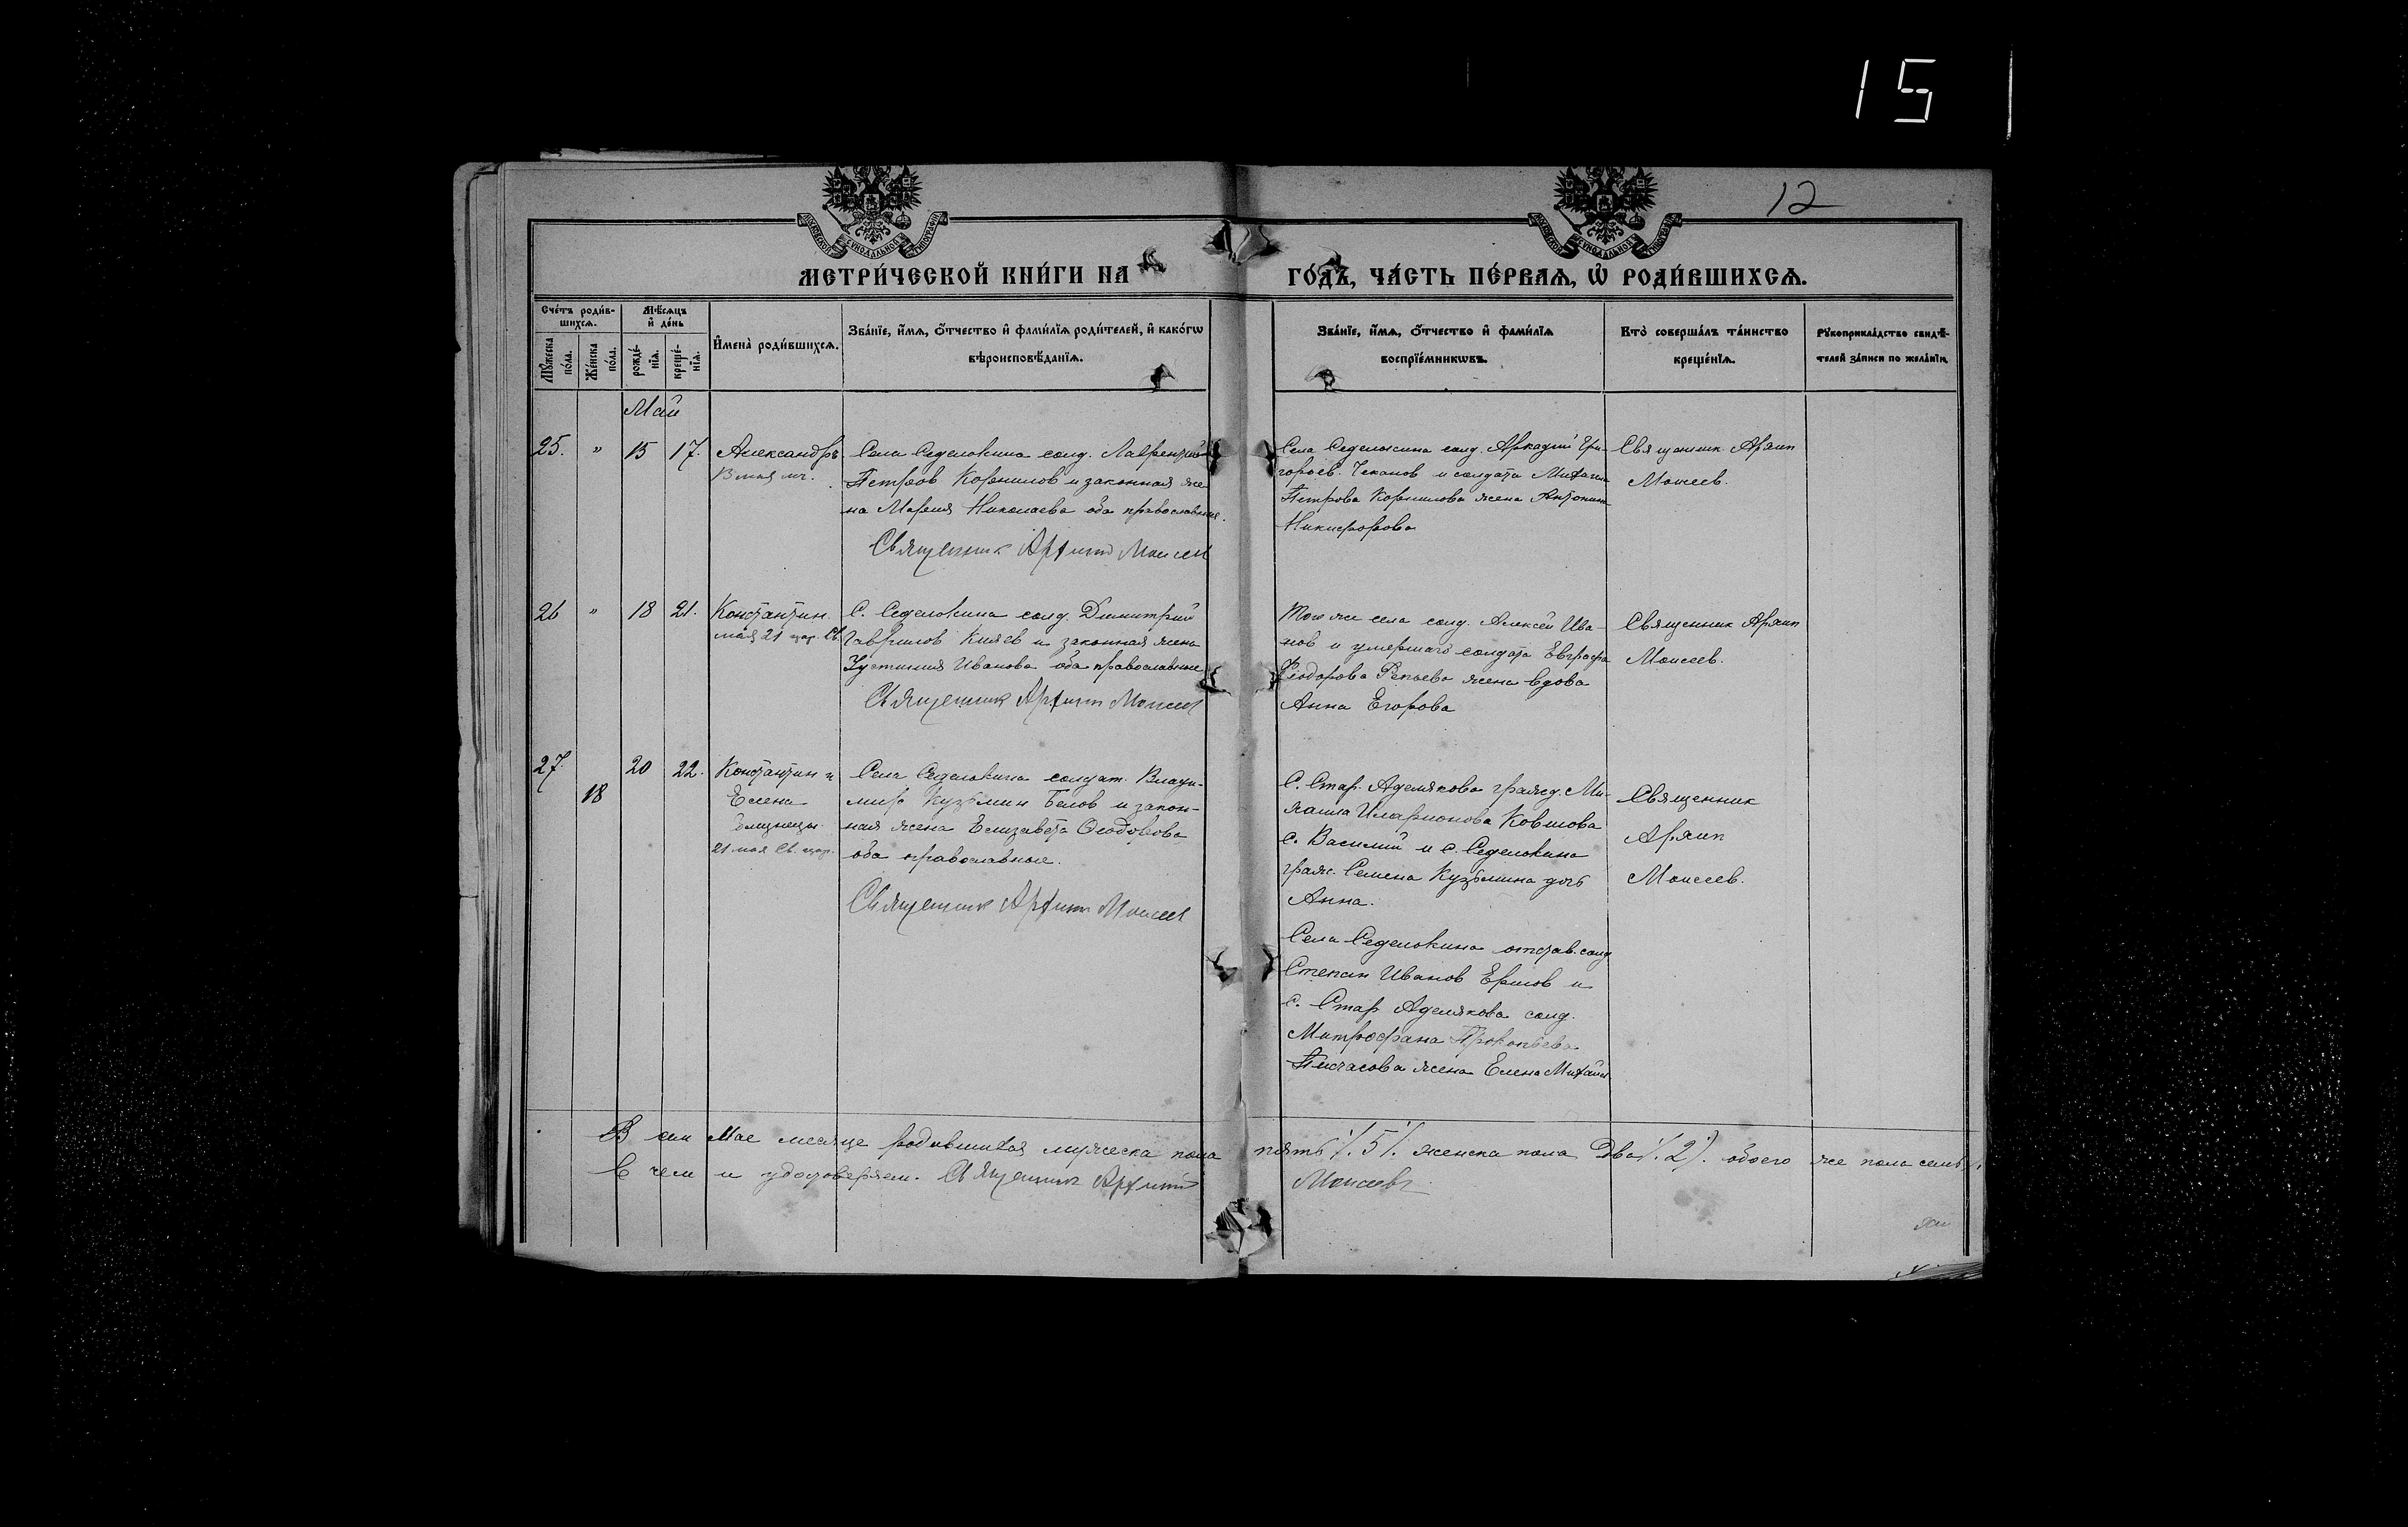 15
12
МЕТРИ́ЧЕСКОЙ КНИ́ГИ НА
ГО́ДЪ, ЧА́СТЬ ПЕ́РВАѦ, Ѿ РОДИ́ВШИХСѦ.
Сче́тъ роди́в-
шихсѧ.
Мꙋ́жеска
по́ла.
Же́нска
по́ла.
Мѣ́сѧцъ
и҆ де́нь
рожде́-
нїѧ.
креще́-
нїѧ.
И҆мена̀ роди́вшихсѧ.
Зва́нїе, и҆́мѧ, ѻ҆́тчество и҆ фами́лїѧ роди́телей, и҆ како́гѡ
вѣроисповѣ́данїѧ.
Зва́нїе, и҆́мѧ, ѻ҆́тчество и҆ фами́лїѧ
воспрїе́мникѡвъ.
Кто̀ соверша́лъ та́инство
креще́нїѧ.
Рꙋкоприкла́дство свидѣ́-
телей за́писи по жела́нїю.
Май
25. " 15 17.
Александръ
13 мая
Села Седелькина солд. Лаврентий
Петров Корнилов и законная же
на Мария Николаева оба православные.
Священник Архипп Моисеев
Села Седелькина солд. Аркадий Гри-
горьев. Чекалов и солдата Михаила
Петрова Корнилова жена Антонина
Никифорова
Священник Архип
Моисеев.
26 " 18 21.
Константин.
мая 21 цар. Св.
С. Седелькина солд. Димитрий
Гаврилов Князев и законная жена
Устиния Иванова оба православные
Священник Архипп Моисеев
Того же села солд. Алексей Ива-
нов и умершаго солдата Евграфа
Феодорова Репьева жена вдова
Анна Егорова
Священник Архип
Моисеев.
27. 18 20 22.
Константин и
Елена
близнецы.
21 мая Св. цар.
Села Седелькина солдат. Влади-
мир Кузьмин Белов и закон-
ная жена Елизавета Феодорова
оба православные.
Священник Архипп Моисеев
С. Стар. Аделякова гражд. Ми-
хаила Иларионова Ковшова
с. Василий и с. Седелькина
граж. Семена Кузьмина дочь
Анна.
Села Седелькина отстав. солд
Степан Иванов Ершов и
с. Стар Аделякова солд.
Митрофана Прокопьева
жена Елена Михайл
Священник
Архип
Моисеев.
В сем Мае месяце родившихся мужеска пола пять /.5/. женска пола два /.2/. обоего же пола семь
В чем и удостоверяем. Священник Архипп Моисеев